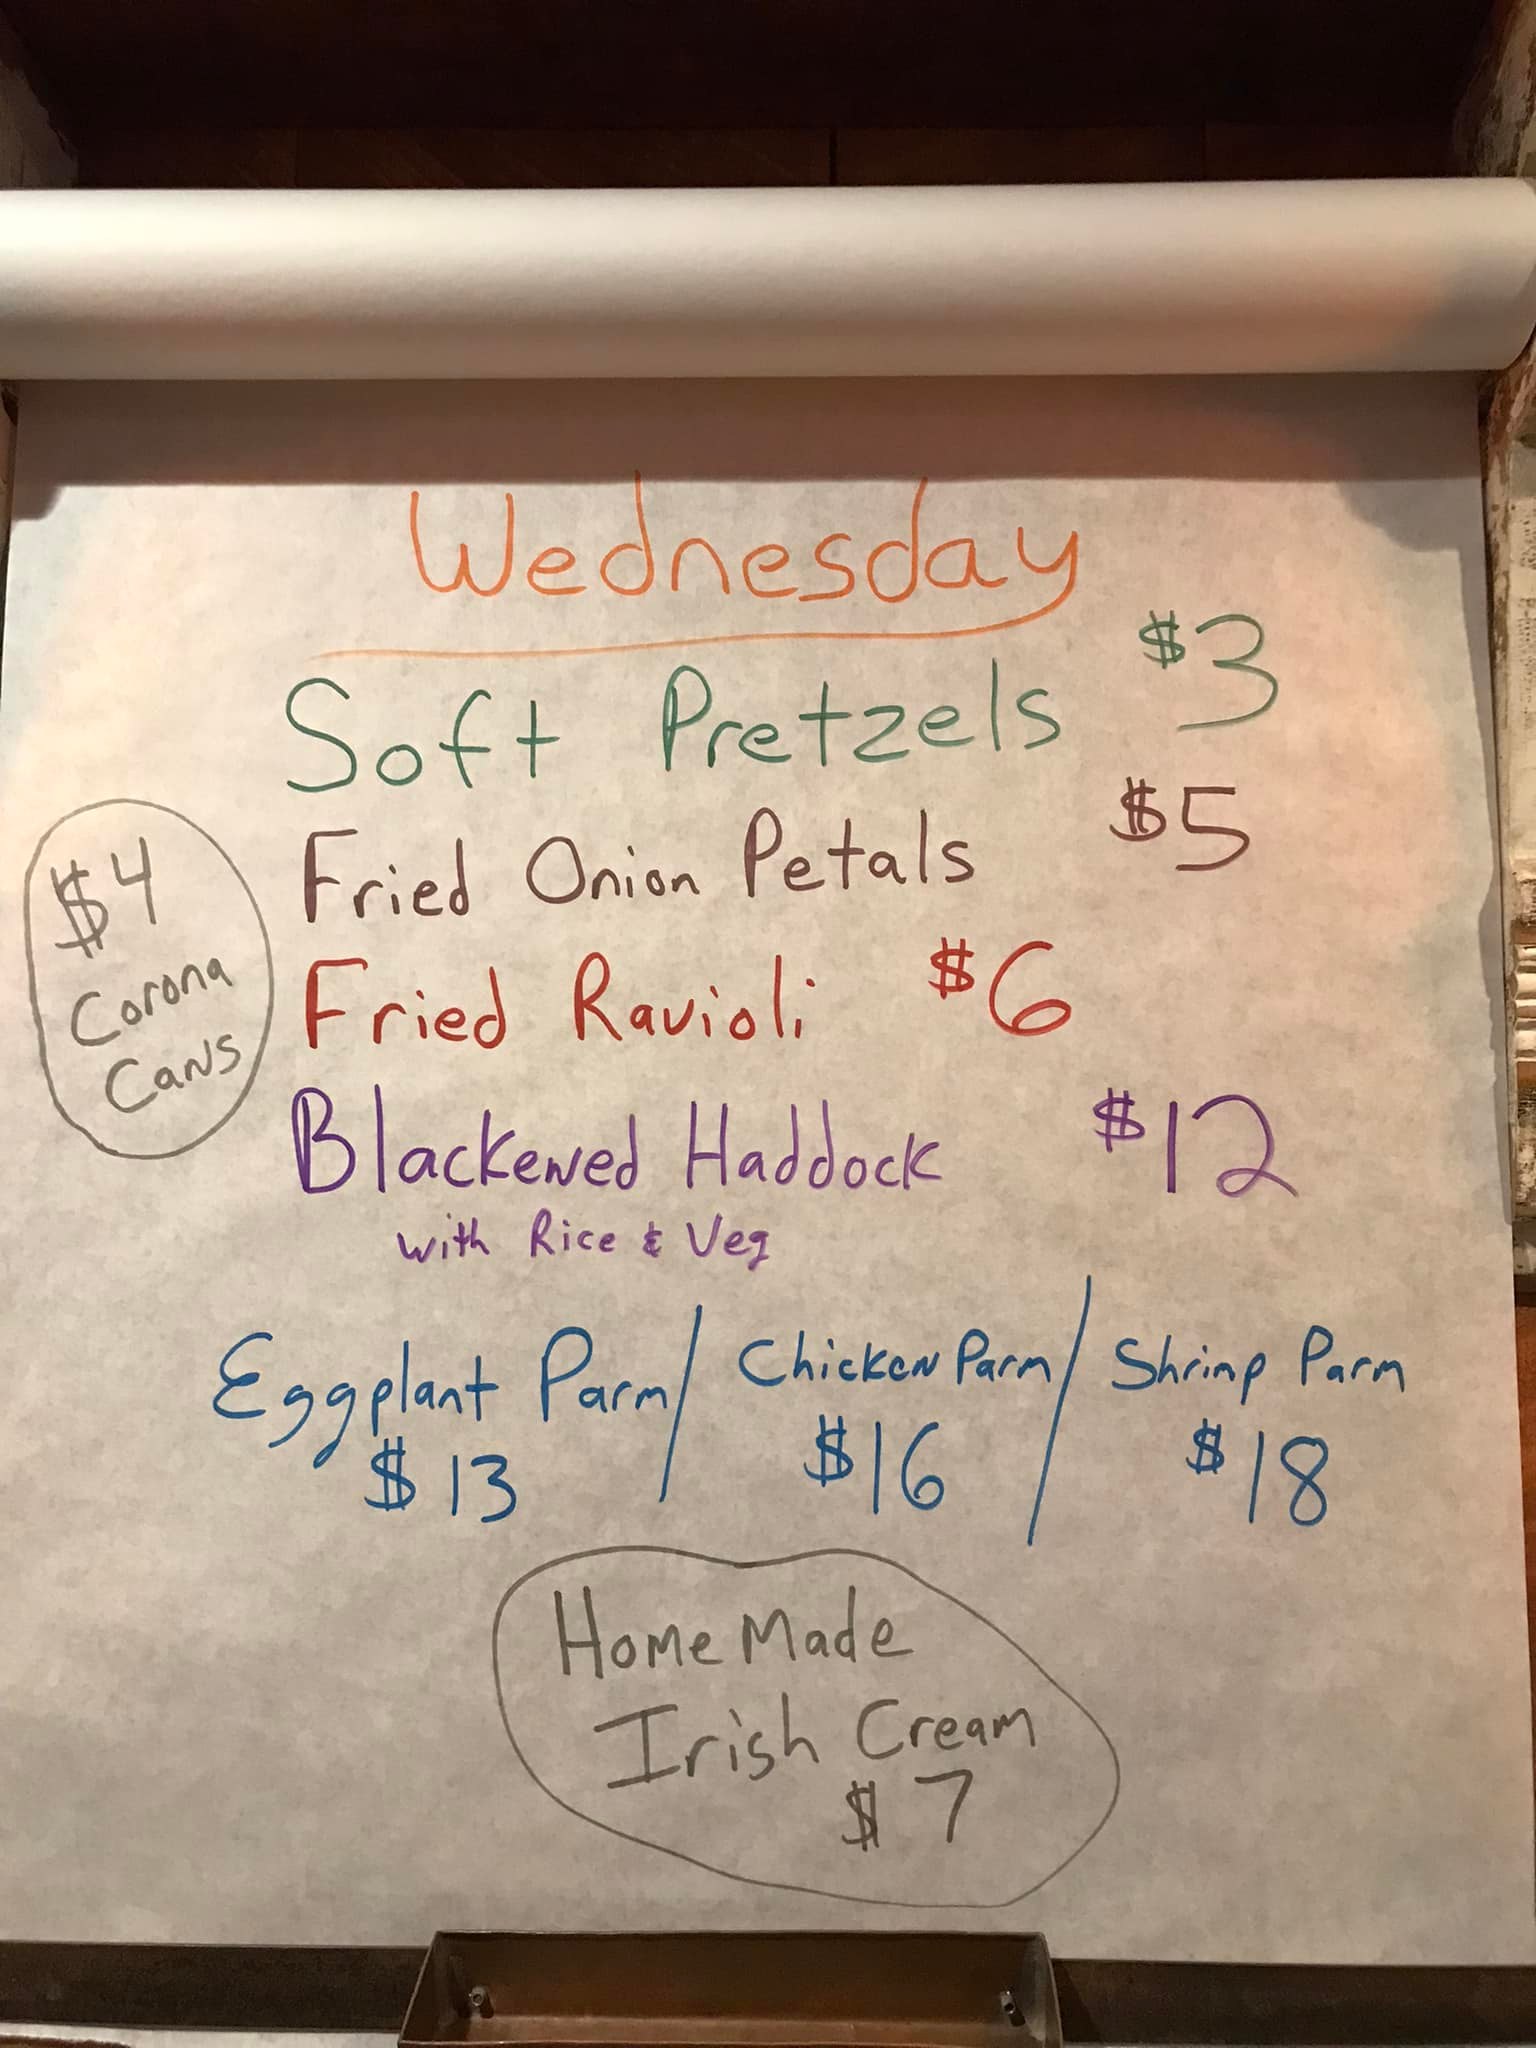 Wednesday
Soft Pretzels $3
Fried Onion Petals $5
$4
Corona
Cans
Fried Ravioli $6
Blackened Haddock $12
with Rice & Veg
Eggplant Parm / Chicken Parm / Shrimp Parm
$13 $16 $18
Home Made
Irish Cream
$7